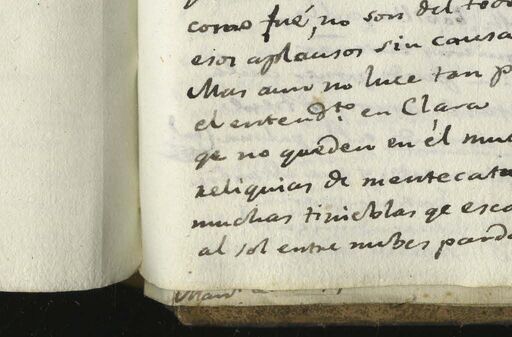 como fué, no son del todo
esos aplausos sin causa
Mas aun no luce tan
el entend.to en Clara
qe no queden en él
reliquias de mentecat
muchas tinieblas qe
al sol entre nubes pard